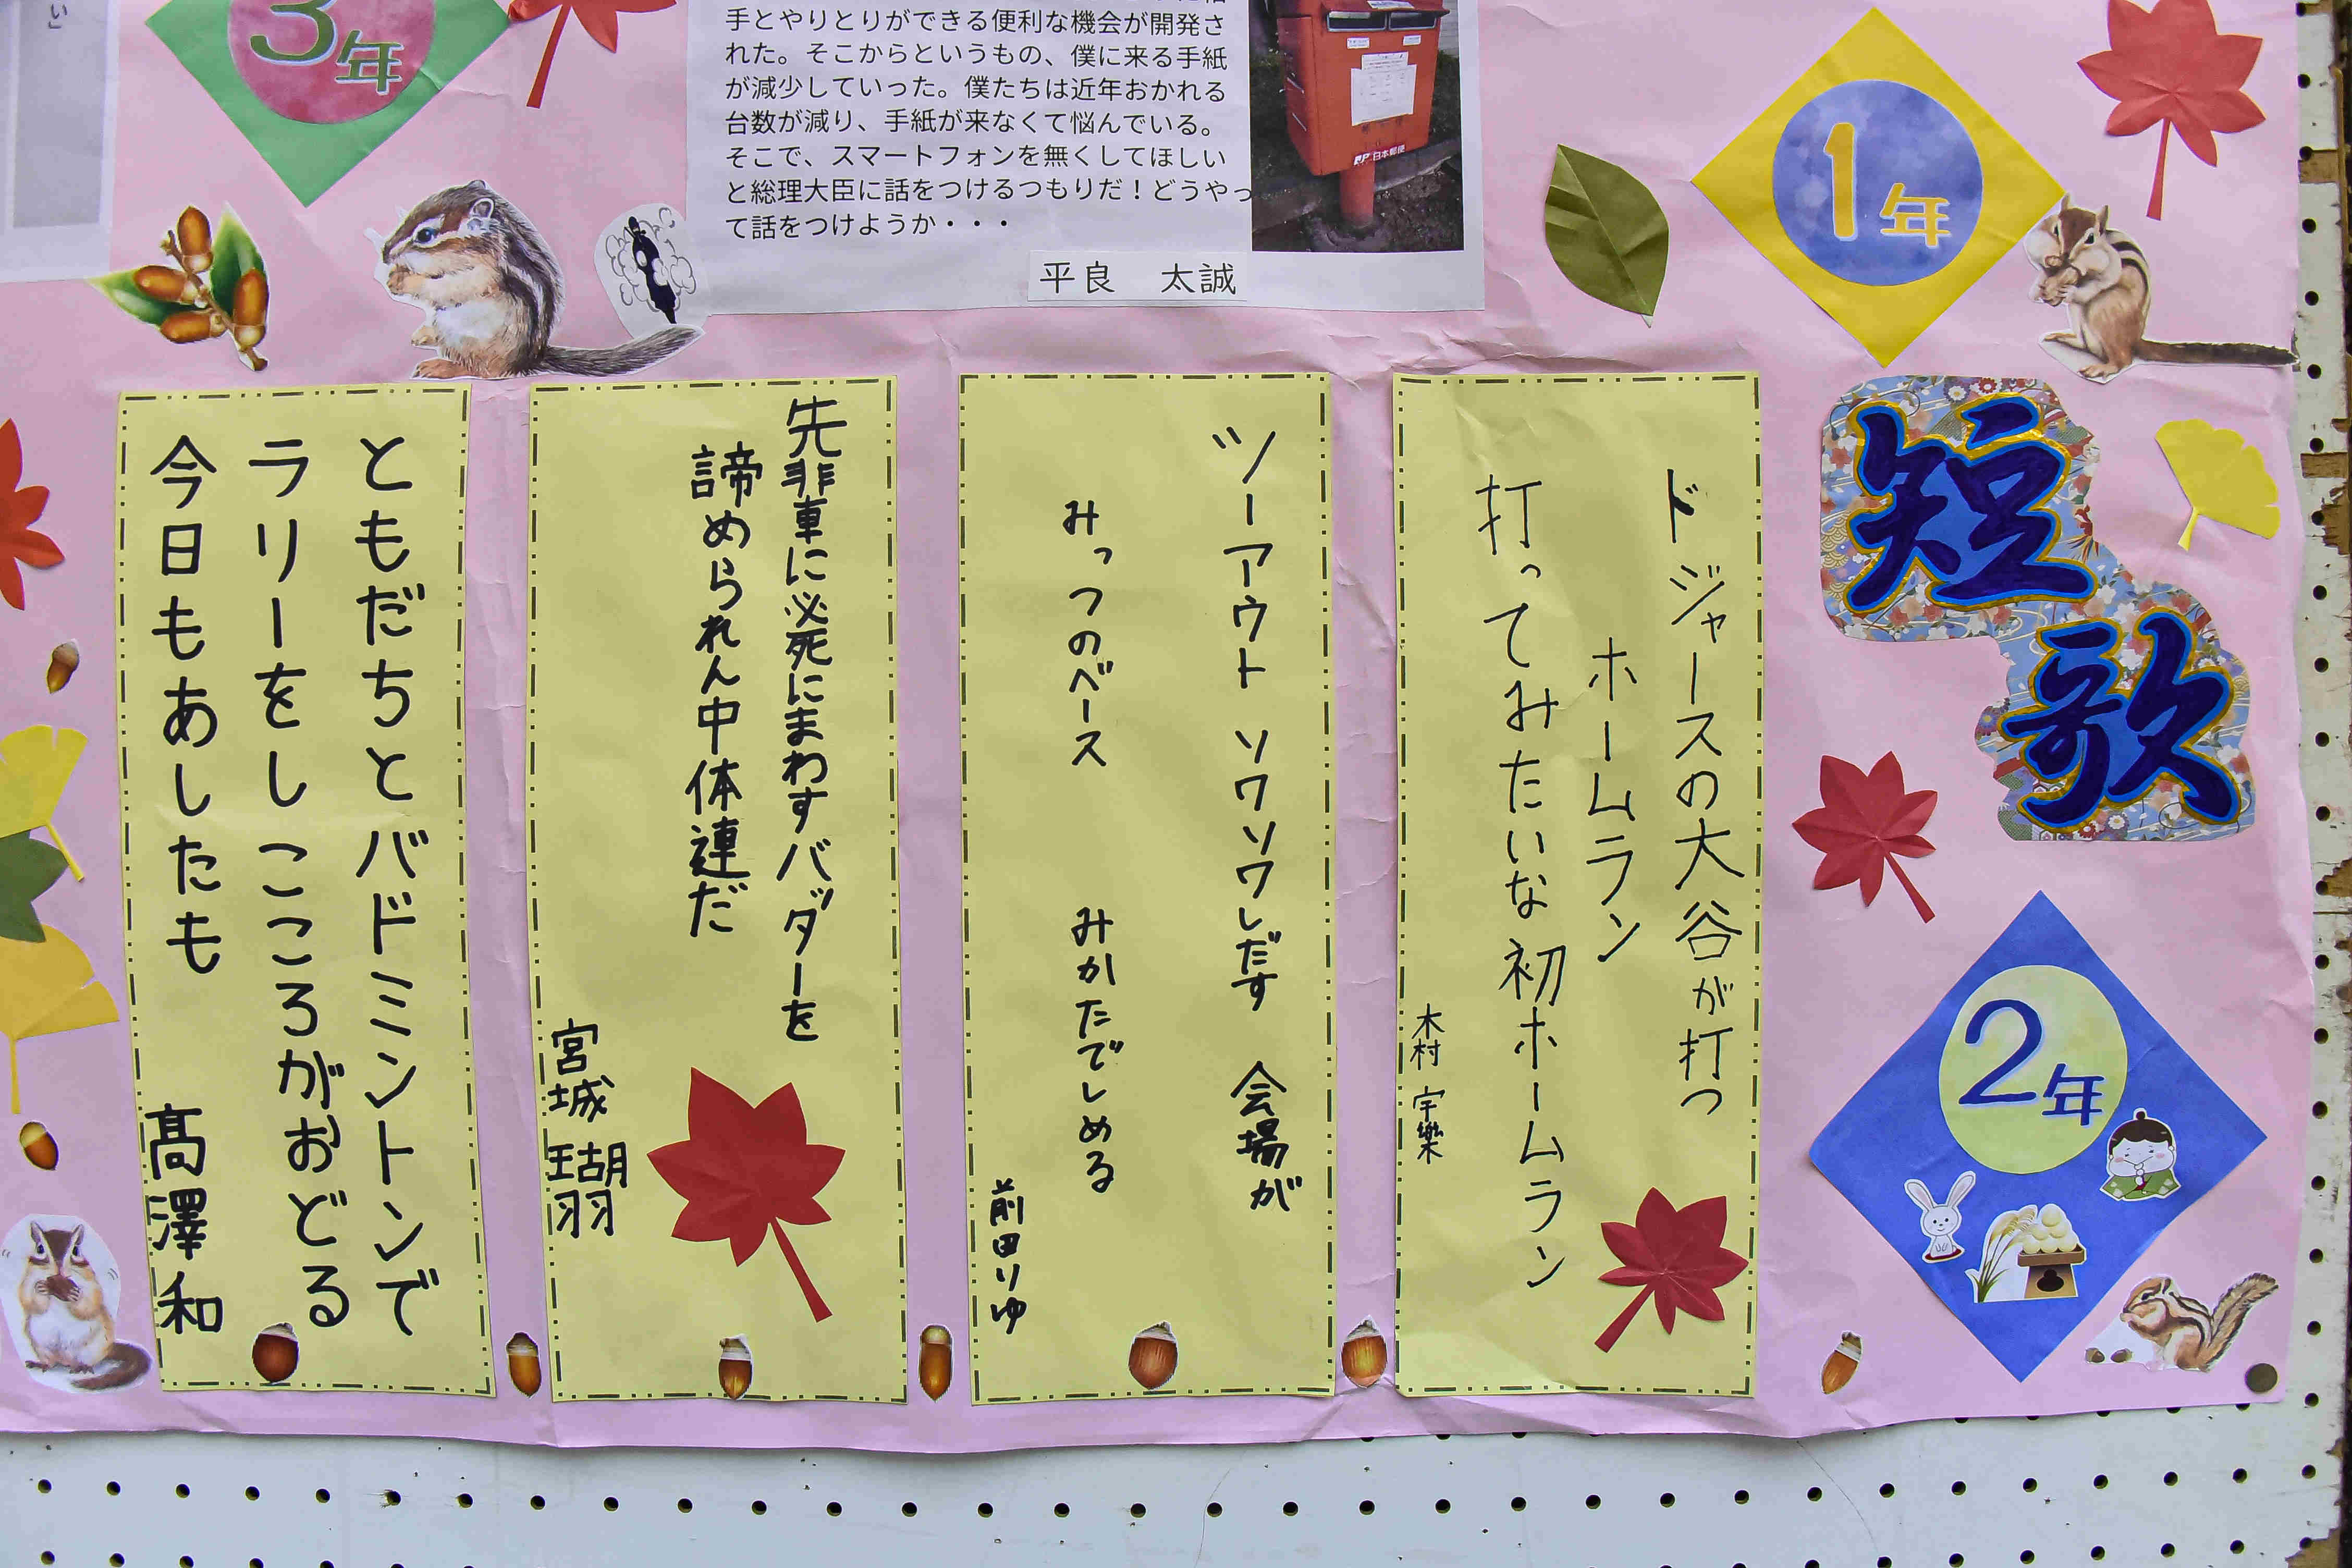 3年
手とやりとりができる便利な機会が開発さ
れた。そこからというもの、僕に来る手紙
が減少していった。僕たちは近年おかれる
台数が減り、手紙が来なくて悩んでいる。
そこで、スマートフォンを無くしてほしい
と総理大臣に話をつけるつもりだ！どうやっ
て話をつけようか・・・
平良 太誠
日本郵便
1年
短歌
2年
ドジャースの大谷が打つ
ホームラン
打ってみたいな初ホームラン
木村 宇樂
ツーアウト ソワソワしだす 会場が
みっつのベース みかたでしめる
前田りゆ
先輩に必死にまわすバダーを
諦められん中体連だ
宮城 瑚羽
ともだちとバドミントンで
ラリーをしこころがおどる
今日もあしたも
髙澤 和